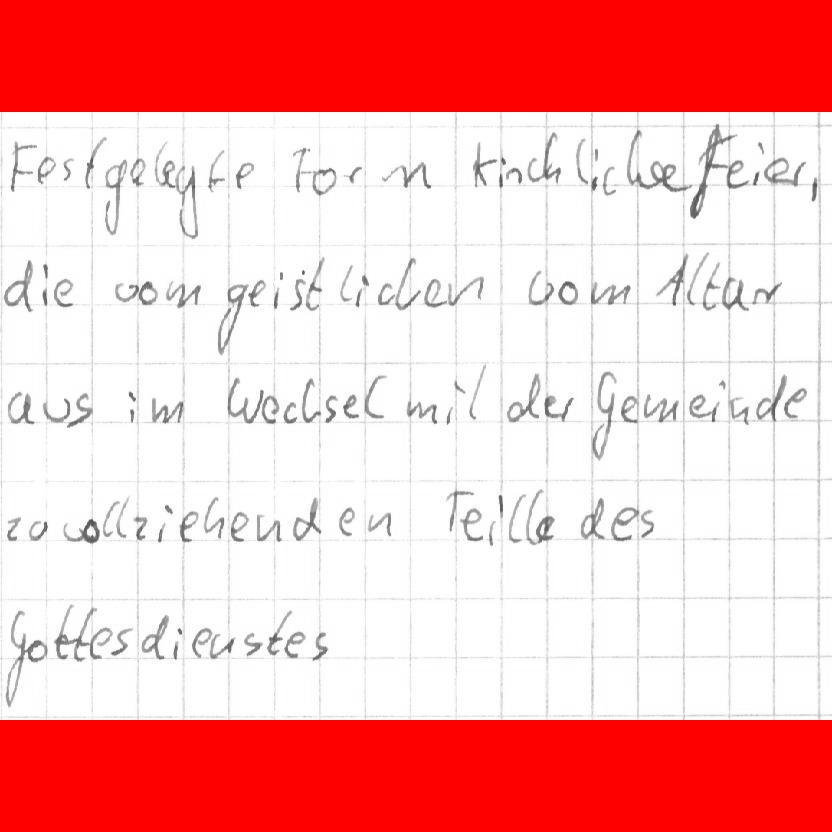 Festgelegte Form kirchliche Feier,
die vom geistlichen vom Altar
aus im Wechsel mit der Gemeinde
zu vollziehenden Teille des
Gottesdienstes